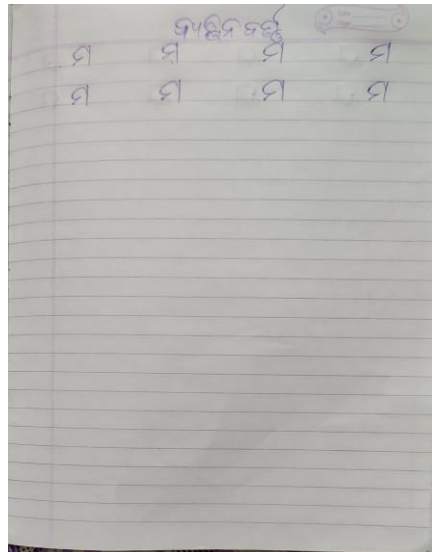 ବ୍ୟଞ୍ଜନ ବର୍ଣ୍ଣ
ମ ମ ମ ମ
ମ ମ ମ ମ